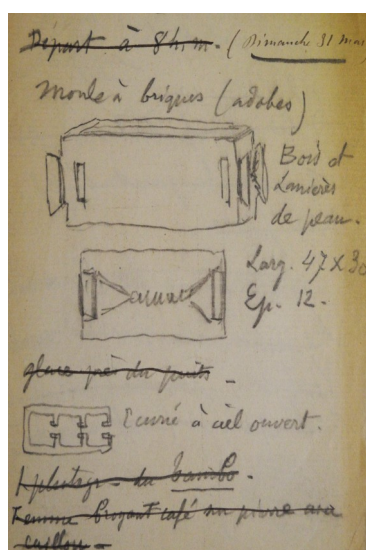 Départ à 8h. m. (Dimanche 31 Mai
Moule à briques (adobes)
Bois et
Lanières
de peau.
Larg. 47 X 30
Ep. 12.
près du puits.
Ecurie à ciel ouvert.
du bambo.
Femme broyant café sur pierre avec
caillou